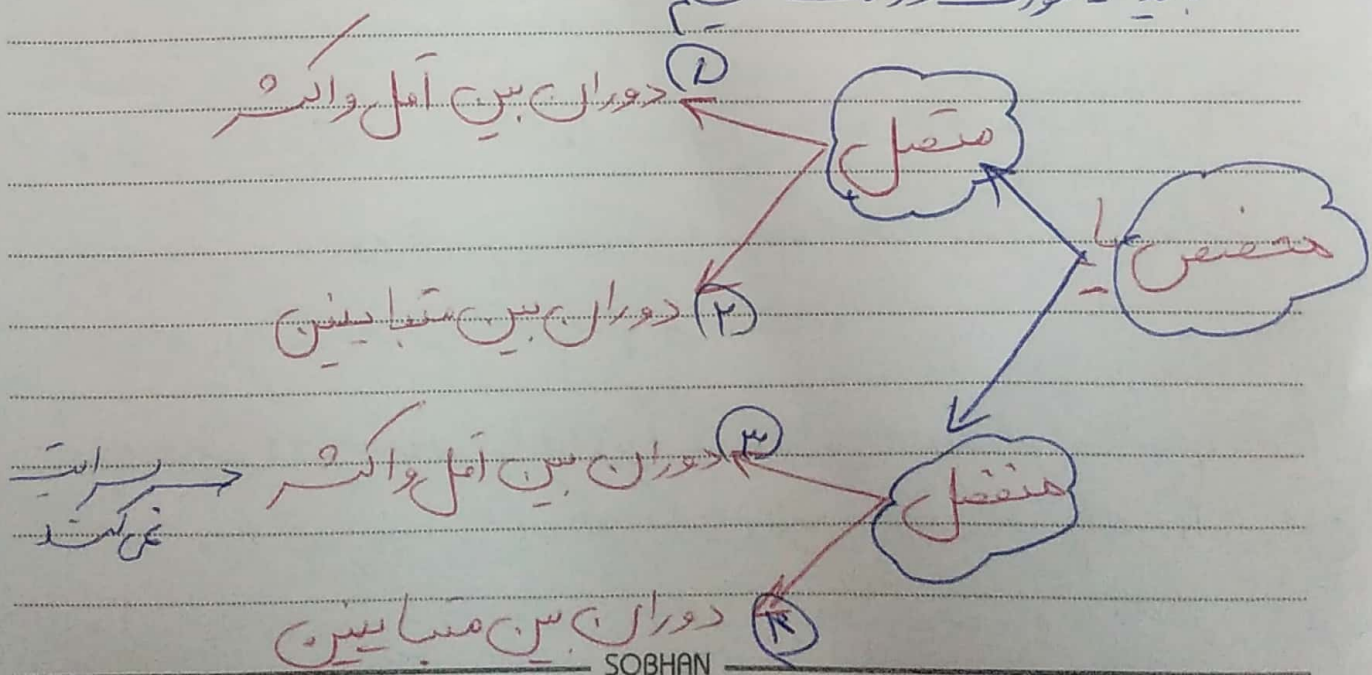 مخصص یا
متصل
① دوران بین اقل و اکثر
② دوران بین متباینین
منفصل
③ دوران بین اقل و اکثر → سرایت نمی‌کند
④ دوران بین متباینین
SOBHAN